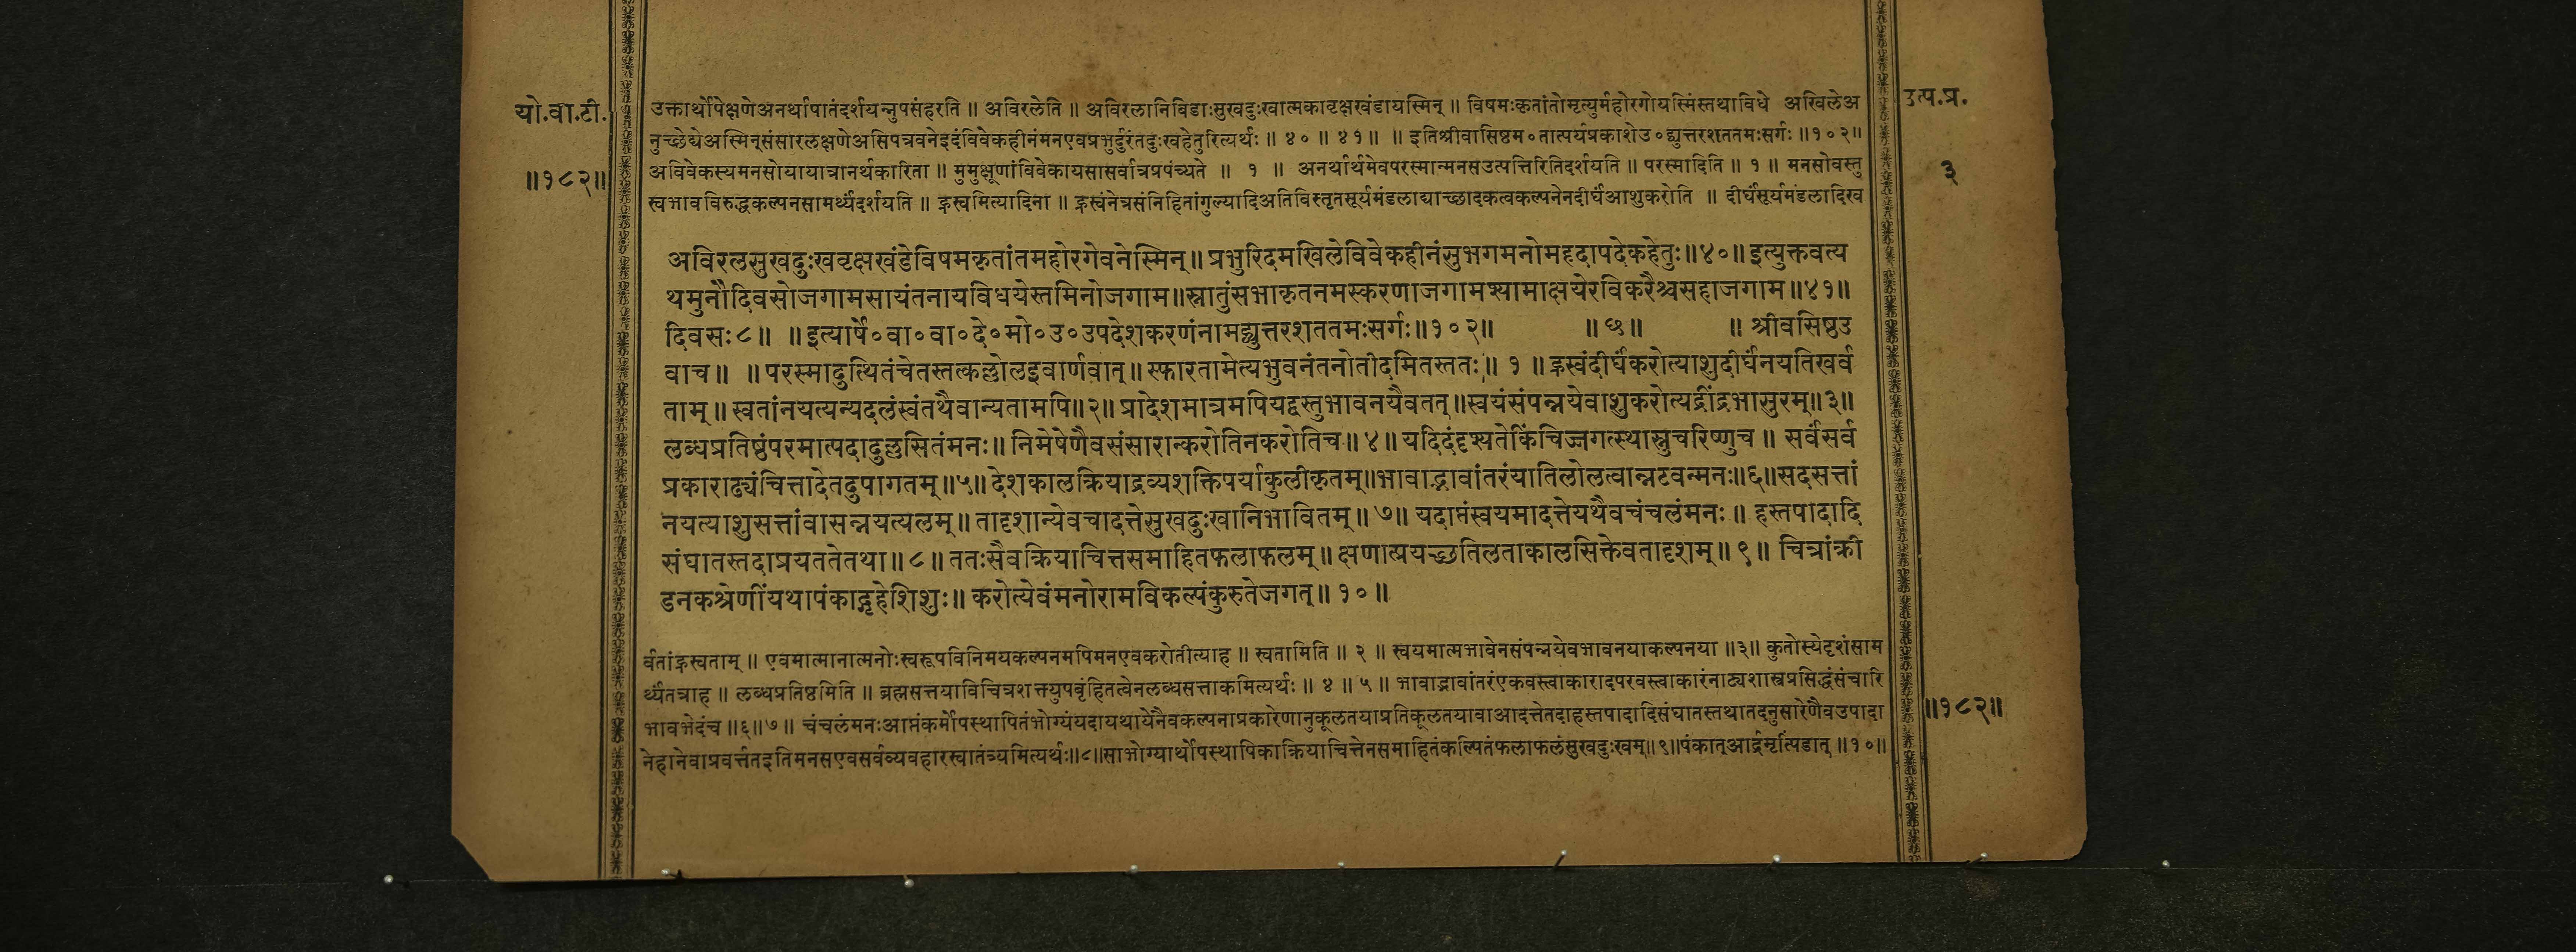 यो.वा.टी.
॥१८२॥
उत्प.प्र.
३
उक्तार्थोपेक्षणेअनर्थापातंदर्शयन्नुपसंहरति ॥ अविरलेति ॥ अविरलानिविडाःसुखदुःखात्मकावृक्षखंडायस्मिन् ॥ विषमःकृतांतोमृत्युर्महोरगोयस्मिंस्तथाविधे अखिलेअ
नुच्छेद्येअस्मिन्संसारलक्षणेअसिपत्रवनेइदंविवेकहीनंमनएवप्रभुर्दुरंतदुःखहेतुरित्यर्थः ॥ ४० ॥ ४१ ॥ ॥ इतिश्रीवासिष्ठम०तात्पर्यप्रकाशेउ०द्व्युत्तरशततमःसर्गः ॥१०२॥
अविवेकस्यमनसोयायात्रानर्थकारिता ॥ मुमुक्षूणांविवेकायसासर्वात्रप्रपंच्यते ॥ १ ॥ अनर्थार्थमेवपरस्मान्मनसउत्पत्तिरितिदर्शयति ॥ परस्मादिति ॥ १ ॥ मनसोवस्तु
स्वभावविरुद्धकल्पनसामर्थ्यंदर्शयति ॥ ह्रस्वमित्यादिना ॥ ह्रस्वंनेत्रसंनिहितांगुल्यादिअतिविस्तृतसूर्यमंडलाद्याच्छादकत्वकल्पनेनदीर्घंआशुकरोति ॥ दीर्घंसूर्यमंडलादिख
अविरलसुखदुःखवृक्षखंडेविषमकृतांतमहोरगेवनेस्मिन् ॥ प्रभुरिदमखिलेविवेकहीनंसुभगमनोमहदापदेकहेतुः॥४०॥ इत्युक्तवत्य
थमुनौदिवसोजगामसायंतनायविधयेस्तमिनोजगाम॥स्नातुंसभाकृतनमस्करणाजगामश्यामाक्षयेरविकरैश्चसहाजगाम॥४१॥
दिवसः८॥ ॥ इत्यार्षे०वा०वा०दे०मो०उ०उपदेशकरणंनामद्व्युत्तरशततमःसर्गः॥१०२॥ ॥ ७ ॥ ॥ श्रीवसिष्ठउ
वाच॥ ॥ परस्मादुत्थितंचेतस्तत्कल्लोलइवार्णवात् ॥ स्फारतामेत्यभुवनंतनोतीदमितस्ततः॥ १ ॥ ह्रस्वंदीर्घंकरोत्याशुदीर्घंनयतिखर्व
ताम् ॥ स्वतांनयत्यन्यदलंस्वंतथैवान्यतामपि॥२॥ प्रादेशमात्रमपियद्वस्तुभावनयैवतत् ॥स्वयंसंपन्नयेवाशुकरोत्यद्रींद्रभासुरम्॥३॥
लब्धप्रतिष्ठंपरमात्पदादुल्लसितंमनः॥ निमेषेणैवसंसारान्करोतिनकरोतिच॥ ४॥ यदिदंदृश्यतेकिंचिज्जगत्स्थास्नुचरिष्णुच ॥ सर्वंसर्व
प्रकाराढ्यंचित्तादेतदुपागतम्॥५॥ देशकालक्रियाद्रव्यशक्तिपर्याकुलीकृतम्॥भावाद्भावांतरंयातिलोलत्वान्नटवन्मनः॥६॥सदसत्तां
नयत्याशुसत्तांवासन्नयत्यलम्॥ तादृशान्येवचादत्तेसुखदुःखानिभावितम्॥ ७॥ यदाप्तंस्वयमादत्तेयथैवचंचलंमनः॥ हस्तपादादि
संघातस्तदाप्रयततेतथा॥ ८॥ ततःसैवक्रियाचित्तसमाहितफलाफलम्॥ क्षणात्प्रयच्छतिलताकालसिक्तेवतादृशम्॥ ९॥ चित्रांक्री
डनकश्रेणींयथापंकाद्गृहेशिशुः॥ करोत्येवंमनोरामविकल्पंकुरुतेजगत्॥ १०॥
र्वतांह्रस्वताम् ॥ एवमात्मानात्मनोःस्वरूपविनिमयकल्पनमपिमनएवकरोतीत्याह ॥ स्वतामिति ॥ २ ॥ स्वयमात्मभावेनसंपन्नयेवभावनयाकल्पनया ॥३॥ कुतोस्येदृशंसाम
र्थ्यंतत्राह ॥ लब्धप्रतिष्ठमिति ॥ ब्रह्मसत्तयाविचित्रशक्त्युपबृंहितत्वेनलब्धसत्ताकमित्यर्थः ॥ ४ ॥ ५ ॥ भावाद्भावांतरंएकवस्त्वाकारादपरवस्त्वाकारंनाट्यशास्त्रप्रसिद्धंसंचारि
भावभेदंच ॥६॥७॥ चंचलंमनःआप्तंकर्मोपस्थापितंभोग्यंयदायथायेनैवकल्पनाप्रकारेणानुकूलतयाप्रतिकूलतयावाआदत्तेतदाहस्तपादादिसंघातस्तथातदनुसारेणैवउपादा
नेहानेवाप्रवर्त्ततइतिमनसएवसर्वव्यवहारस्वातंत्र्यमित्यर्थः॥८॥साभोग्यार्थोपस्थापिकाक्रियाचित्तेनसमाहितंकल्पितंफलाफलंसुखदुःखम्॥९॥पंकात्आर्द्रमृत्पिंडात् ॥१०॥
॥१८२॥